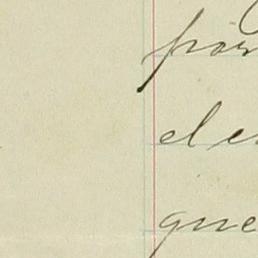 por
el e
que